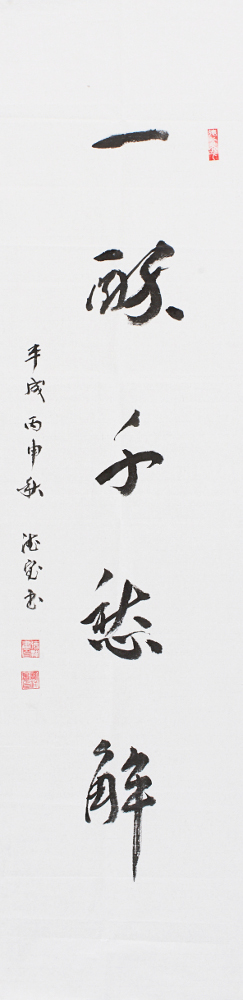 一酔千愁解
平成丙申秋 書